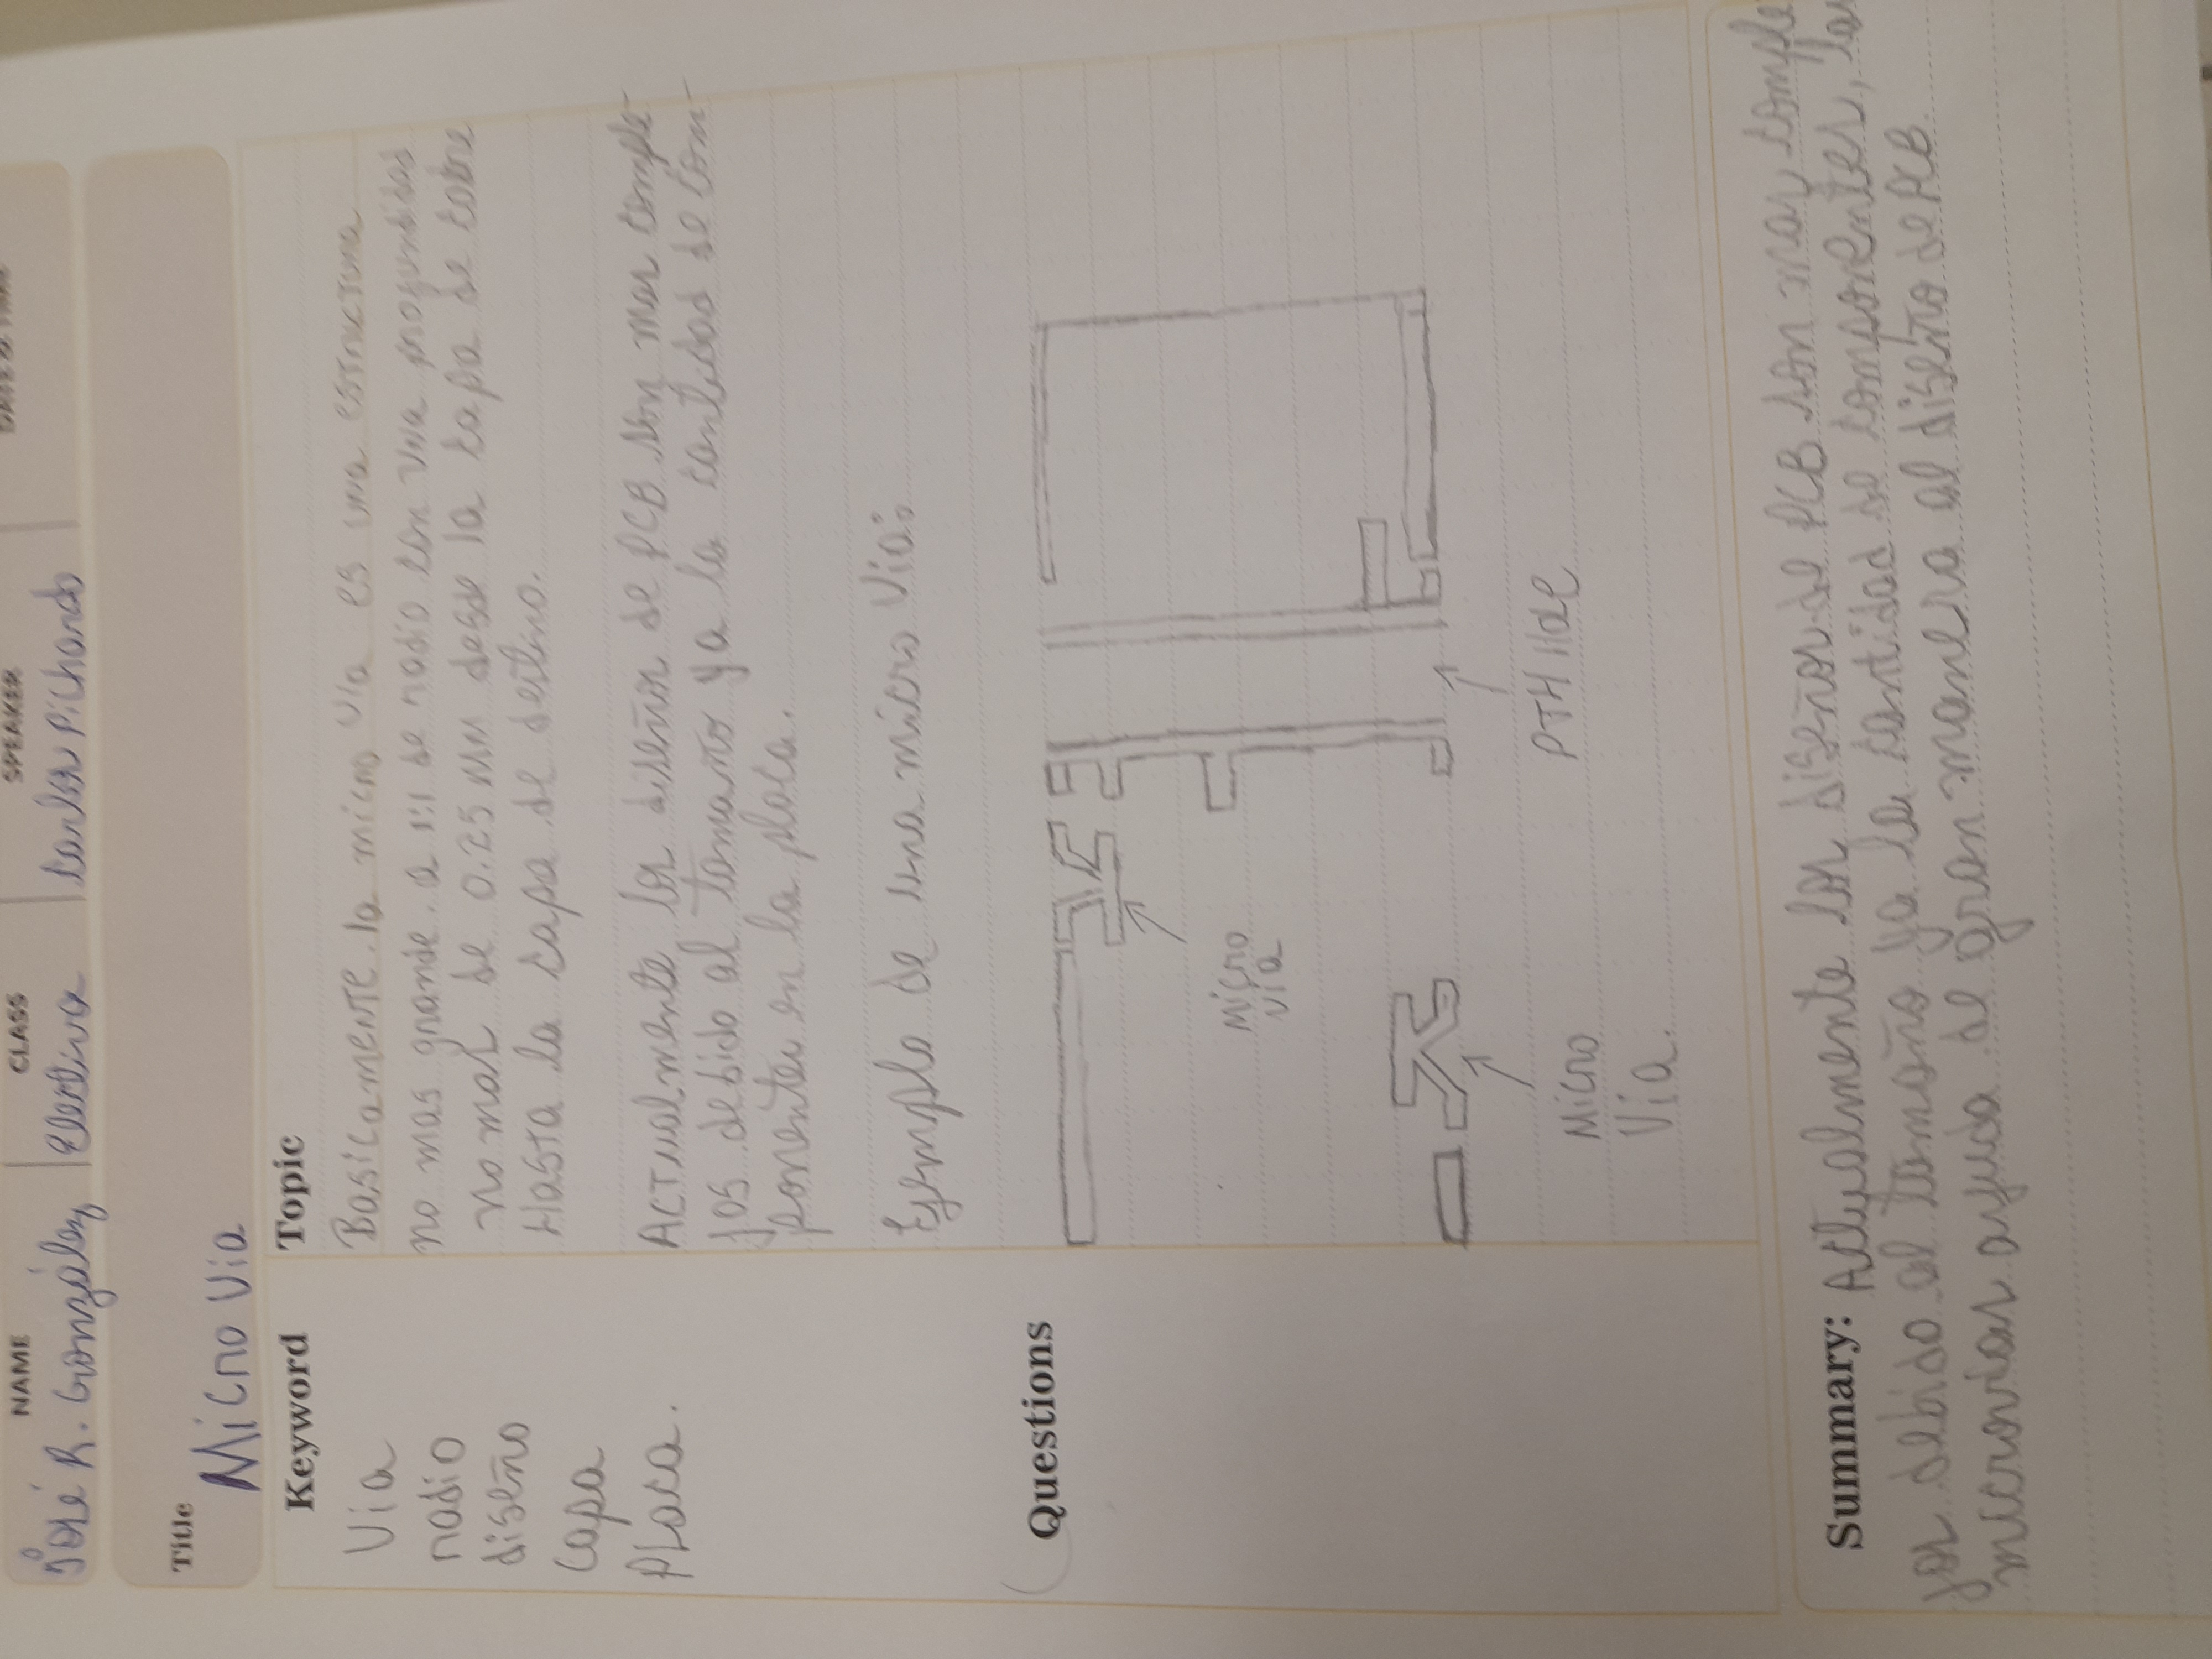 NAME CLASS SPEAKER DATE & TIME
José R. González Electiva Carlos Pichardo
Title
Micro Via
Keyword
Via
radio
diseño
Capa
PLaca.
Topic
Basicamente la micro via es una estructura
no mas grande a 1:1 de radio con una profundidad
no mas de 0.25 MM desde la capa de cobre
Hasta la capa de destino.
Actualmente los diseños de PCB son mas comple-
jos debido al tamaño y a la cantidad de com-
ponentes en la placa.
Ejemplo de una micro Via:
Questions
Micro
via
Micro
Via.
PTH Hole
Summary: Actualmente los diseños de PCB son mas comple
jos debido al tamaño y a la cantidad de componentes, las
microvias ayuda de gran manera al diseño de PCB.